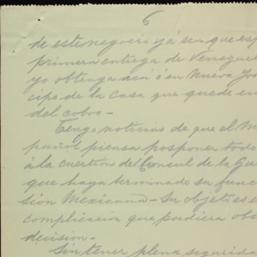 6
de este negocio ya sea que esp
primera entrega de Venezue
yo obtenga acá ó en Nueva Yor
cipo de la casa que quede en
del cobro.-
Tengo noticias de que el M
piensa posponer todo
á la cuestion del Consul de la Gu
que haya terminado su func
sión Mexicana - Su objeto es e
complicación que pudiera obs
decisión.-
Sin tener plena seguridad